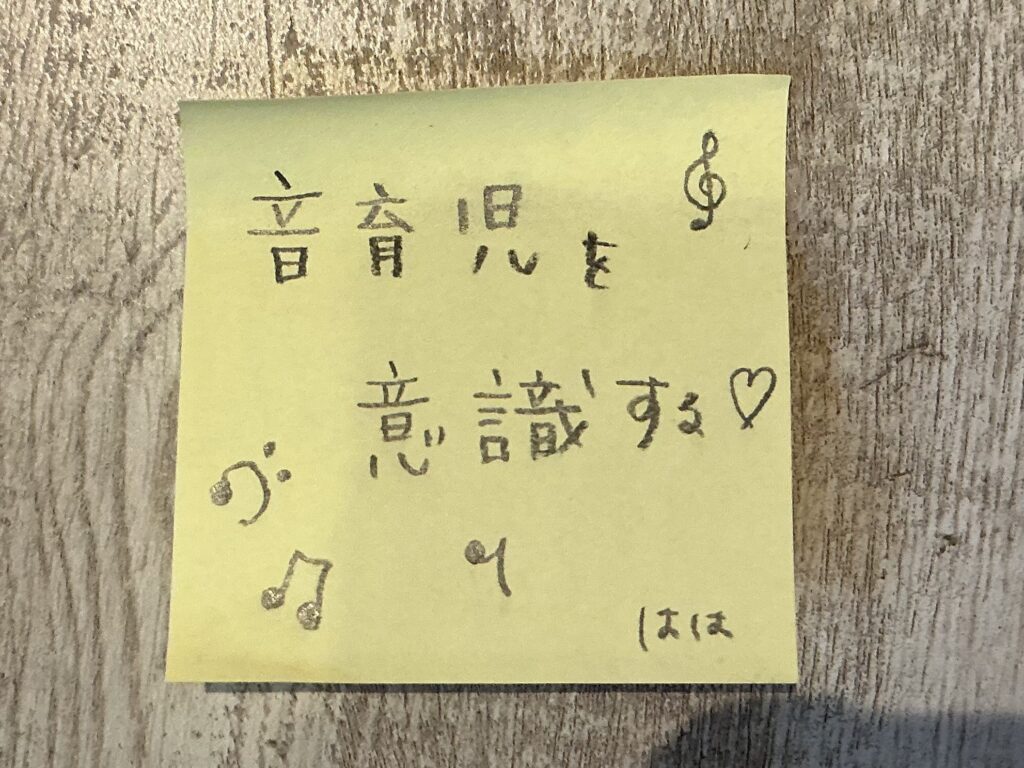 音育児を
意識する♡
はは